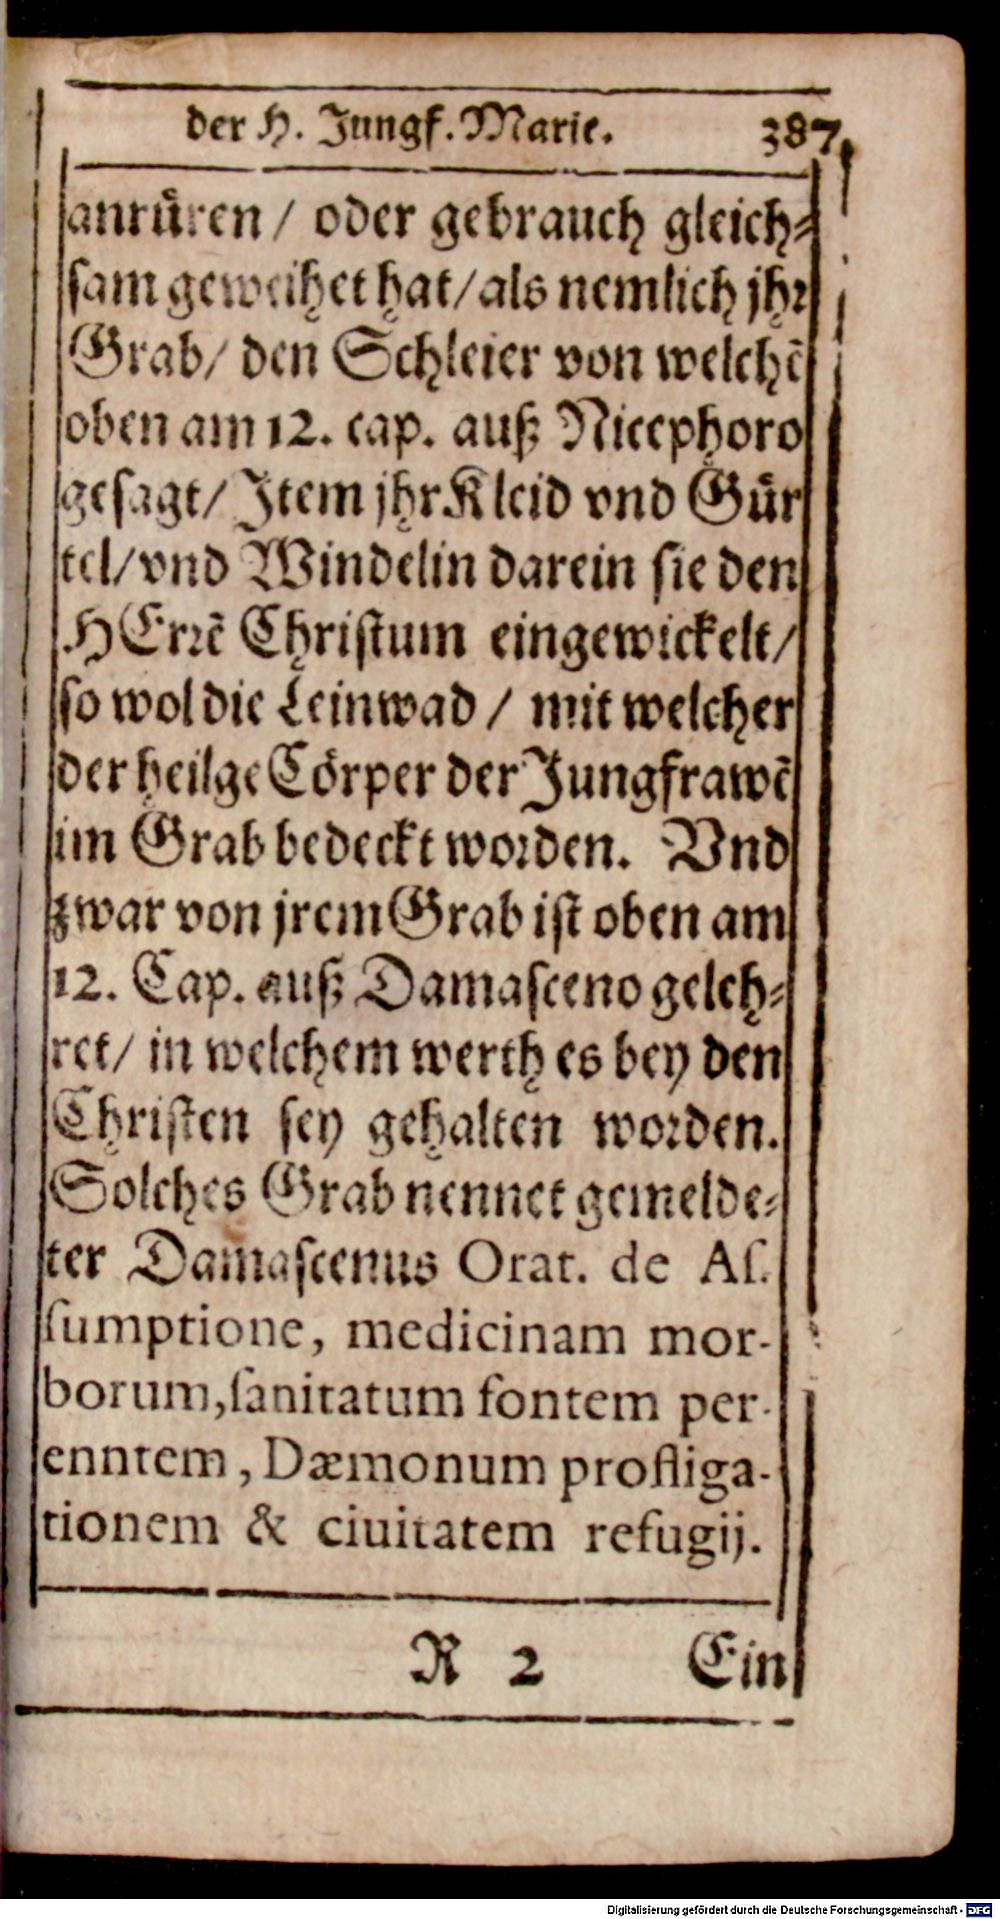 der H. Jungf. Marie. 387
anrüren / oder gebrauch gleich-
sam geweihet hat / als nemlich jhr
Grab / den Schleier von welchē
oben am 12. cap. auß Nicephoro
gesagt / Item jhr Kleid vnd Gür
tel / vnd Windelin darein sie den
HErrē Christum eingewickelt /
so wol die Leinwad / mit welcher
der heilge Cörper der Jungfrawē
im Grab bedeckt worden. Vnd
zwar von jrem Grab ist oben am
12. Cap. auß Damasceno geleh-
ret / in welchem werth es bey den
Christen sey gehalten worden.
Solches Grab nennet gemelde-
ter Damascenus Orat. de As.
sumptione, medicinam mor-
borum, sanitatum fontem per-
enntem, Dæmonum profliga-
tionem & ciuitatem refugij.
R 2 Ein
Digitalisierung gefördert durch die Deutsche Forschungsgemeinschaft - DFG